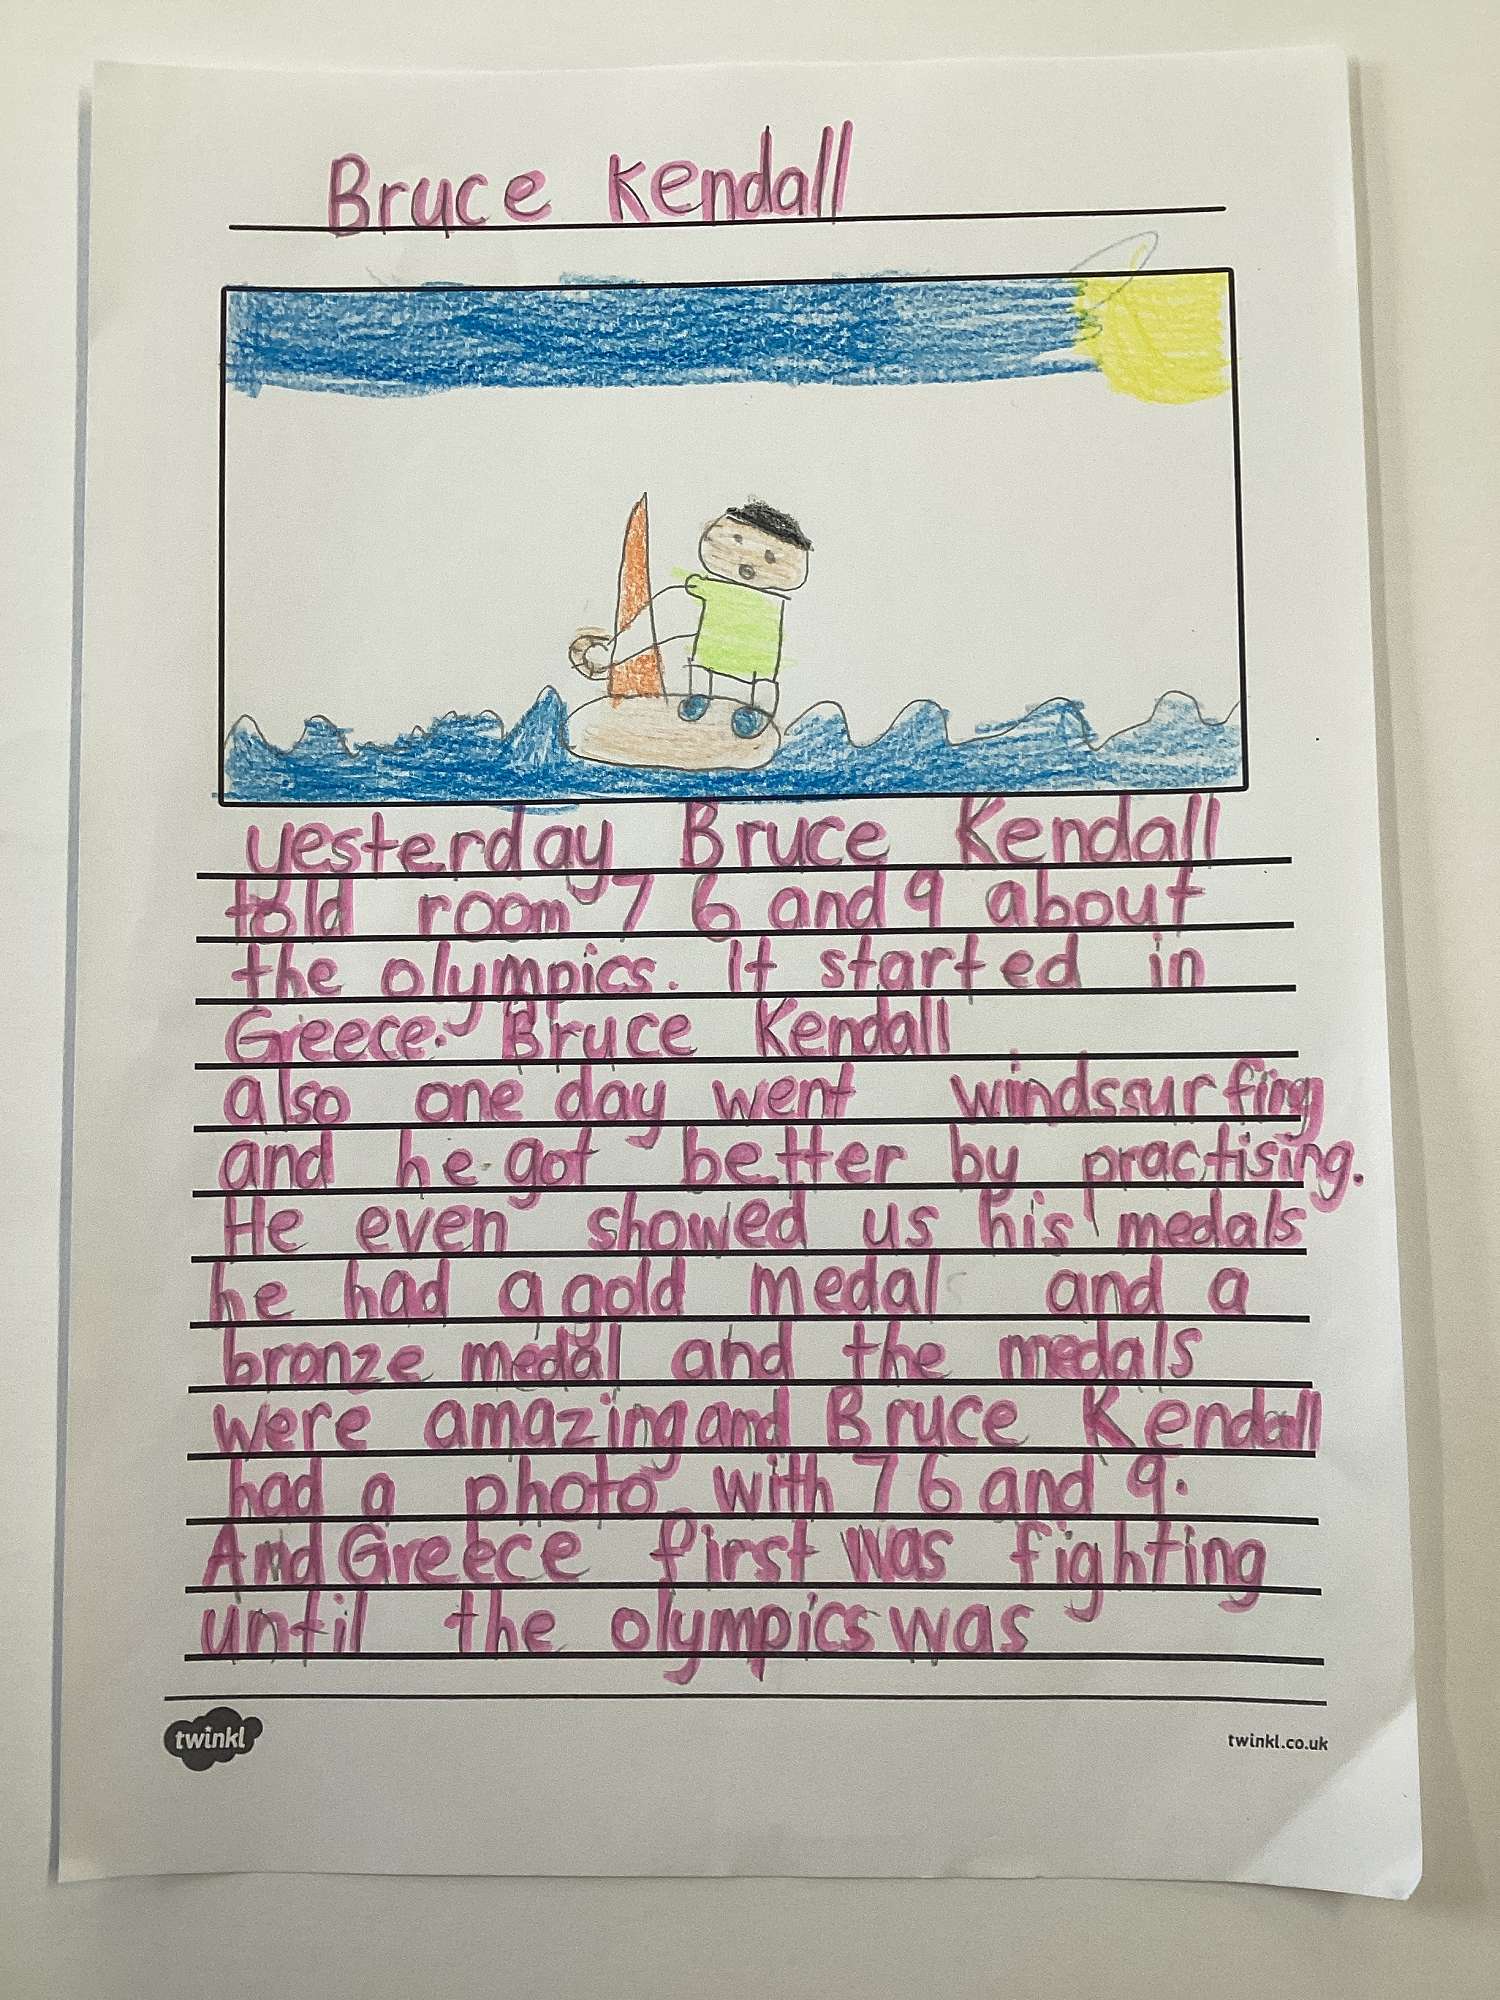 Bruce Kendall
yesterday Bruce Kendall
told room 7 6 and 9 about
the olympics. It started in
Greece. Bruce Kendall
also one day went windssurfing
and he got better by practising.
He even showed us his medals
he had a gold medal and a
bronze medal and the medals
were amazing and Bruce Kendall
had a photo with 7 6 and 9.
And Greece first was fighting
until the olympics was
twinkl
twinkl.co.uk